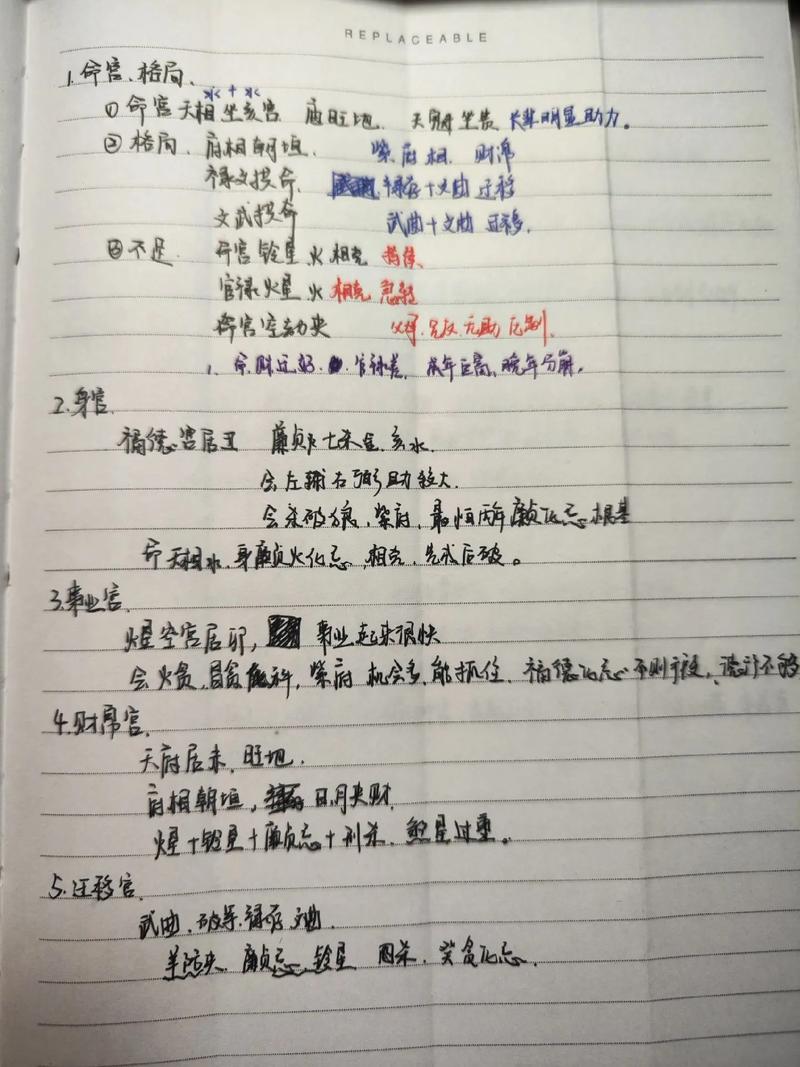 REPLACEABLE
1.命宫、格局、
水+水
① 命宫天相坐亥宫 庙旺地. 天舜坐贵 长辈明显助力。
② 格局. 府相朝垣. 紫府相. 财帛
禄文拱命. 禄存+文曲 迁移
文武拱命 武曲+文曲 迁移.
不足. 铃星 火相克
官禄火星 火 相克 急转
命宫空劫夹 无助
1、命财迁好. 官禄差.
2.身宫.
福德宫居丑 廉贞火七杀金.亥水.
会左辅右弼助较大.
会杀破狼,紫府,最怕丙年廉贞化忌.根基
命天相水.身廉贞火化忌.相克.先成后破。
3.事业宫.
火星空宫居卯, 事业起来很快
会火贪,紫府 机会多.能抓住.福德化忌 不够
4.财帛宫.
天府居未.旺地.
府相朝垣, 日月夹财.
火星+铃星+廉贞忌+刑杀.煞星过重。
5.迁移宫.
武曲.破军.禄存.文曲.
羊陀夹.廉贞忌.铃星 化忌.